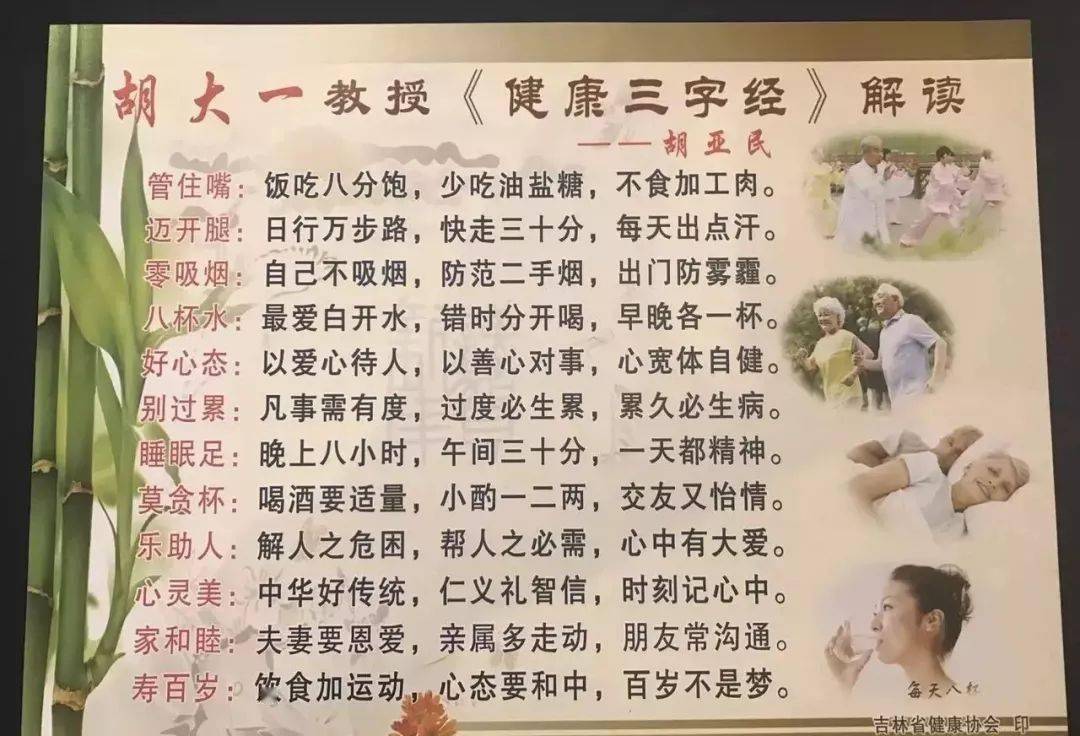 胡大一教授《健康三字经》解读
——胡亚民
管住嘴：饭吃八分饱，少吃油盐糖，不食加工肉。
迈开腿：日行万步路，快走三十分，每天出点汗。
零吸烟：自己不吸烟，防范二手烟，出门防雾霾。
八杯水：最爱白开水，错时分开喝，早晚各一杯。
好心态：以爱心待人，以善心对事，心宽体自健。
别过累：凡事需有度，过度必生累，累久必生病。
睡眠足：晚上八小时，午间三十分，一天都精神。
莫贪杯：喝酒要适量，小酌一二两，交友又怡情。
乐助人：解人之危困，帮人之必需，心中有大爱。
心灵美：中华好传统，仁义礼智信，时刻记心中。
家和睦：夫妻要恩爱，亲属多走动，朋友常沟通。
寿百岁：饮食加运动，心态要和中，百岁不是梦。
每天八杯
吉林省健康协会 印